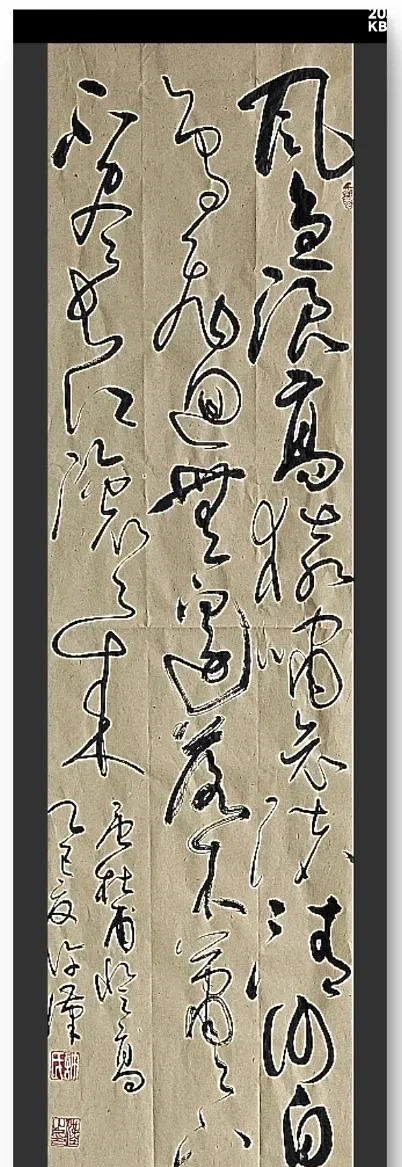 20
KB
風急浪高猿嘯哀渚清沙白
鳥飛迴無邊落木蕭〻下
不盡長江滾〻來
唐杜甫登高
乙巳夏